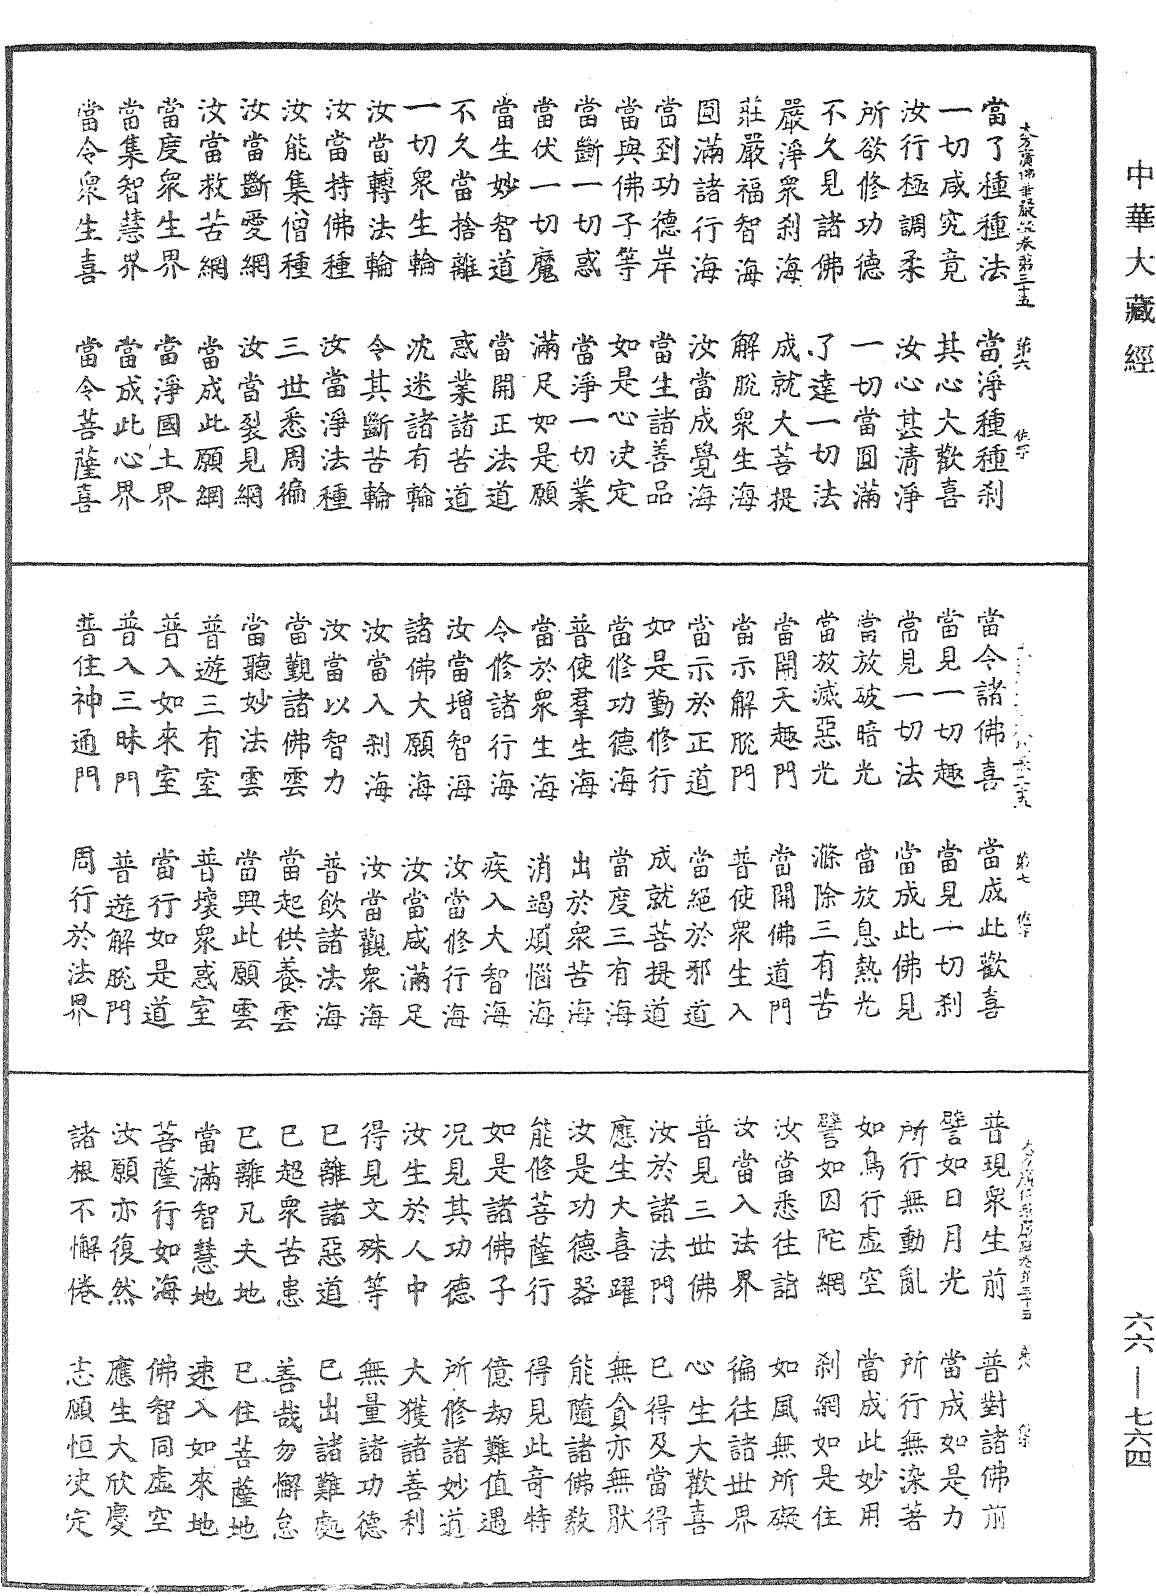 中華大藏經
當了種種法　當淨種種刹
一切咸究竟　其心大歡喜
汝行極調柔　汝心甚清淨
所欲修功德　一切當圓滿
不久見諸佛　了達一切法
嚴淨衆刹海　成就大菩提
莊嚴福智海　解脫衆生海
圓滿諸行海　汝當成覺海
當到功德岸　當生諸善品
當與佛子等　如是心決定
當斷一切惑　當淨一切業
當伏一切魔　滿足如是願
當生妙智道　當開正法道
不久當捨離　惑業諸苦道
一切衆生輪　沈迷諸有輪
汝當轉法輪　令其斷苦輪
汝當持佛種　汝當淨法種
汝能集僧種　三世悉周徧
汝當斷愛網　汝當裂見網
汝當救苦網　當成此願網
當度衆生界　當淨國土界
當集智慧界　當成此心界
當令衆生喜　當令菩薩喜
當令諸佛喜　當成此歡喜
當見一切趣　當見一切刹
當見一切法　當成此佛見
當放破暗光　當放息熱光
當放滅惡光　滌除三有苦
當開天趣門　當開佛道門
當示解脫門　普使衆生入
當示於正道　當絕於邪道
如是勤修行　成就菩提道
當修功德海　當度三有海
普使羣生海　出於衆苦海
當於衆生海　消竭煩惱海
令修諸行海　疾入大智海
汝當增智海　汝當修行海
諸佛大願海　汝當咸滿足
汝當入刹海　汝當觀衆海
汝當以智力　普飲諸法海
當覲諸佛雲　當起供養雲
當聽妙法雲　當興此願雲
普遊三有室　普壞衆惑室
普入如來室　當行如是道
普入三昧門　普遊解脫門
普住神通門　周行於法界
普現衆生前　普對諸佛前
譬如日月光　當成如是力
所行無動亂　所行無染著
如鳥行虛空　當成此妙用
譬如因陀網　刹網如是住
汝當悉往詣　如風無所礙
汝當入法界　徧往諸世界
普見三世佛　心生大歡喜
汝於諸法門　已得及當得
應生大喜躍　無貪亦無猒
汝是功德器　能隨諸佛教
能修菩薩行　得見此奇特
如是諸佛子　億劫難值遇
況見其功德　所修諸妙道
汝生於人中　大獲諸善利
得見文殊等　無量諸功德
已離諸惡道　已出諸難處
已超衆苦患　善哉勿懈怠
已離凡夫地　已住菩薩地
當滿智慧地　速入如來地
菩薩行如海　佛智同虛空
汝願亦復然　應生大欣慶
諸根不懈倦　志願恒決定
六六—七六四